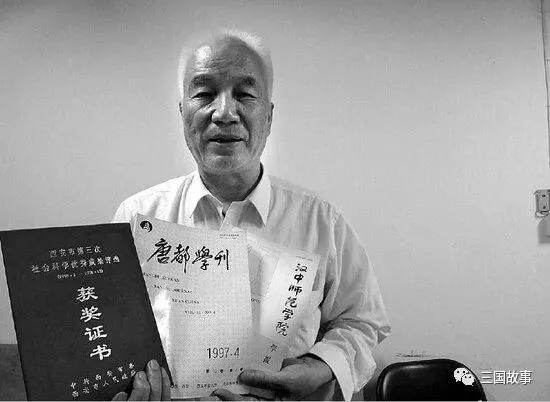 西安市第三次
社会科学优秀成果评选
获奖证书
中共西安市委
西安市人民政府
唐都學刊
1997·4
汉中师范学院
学报
三国故事